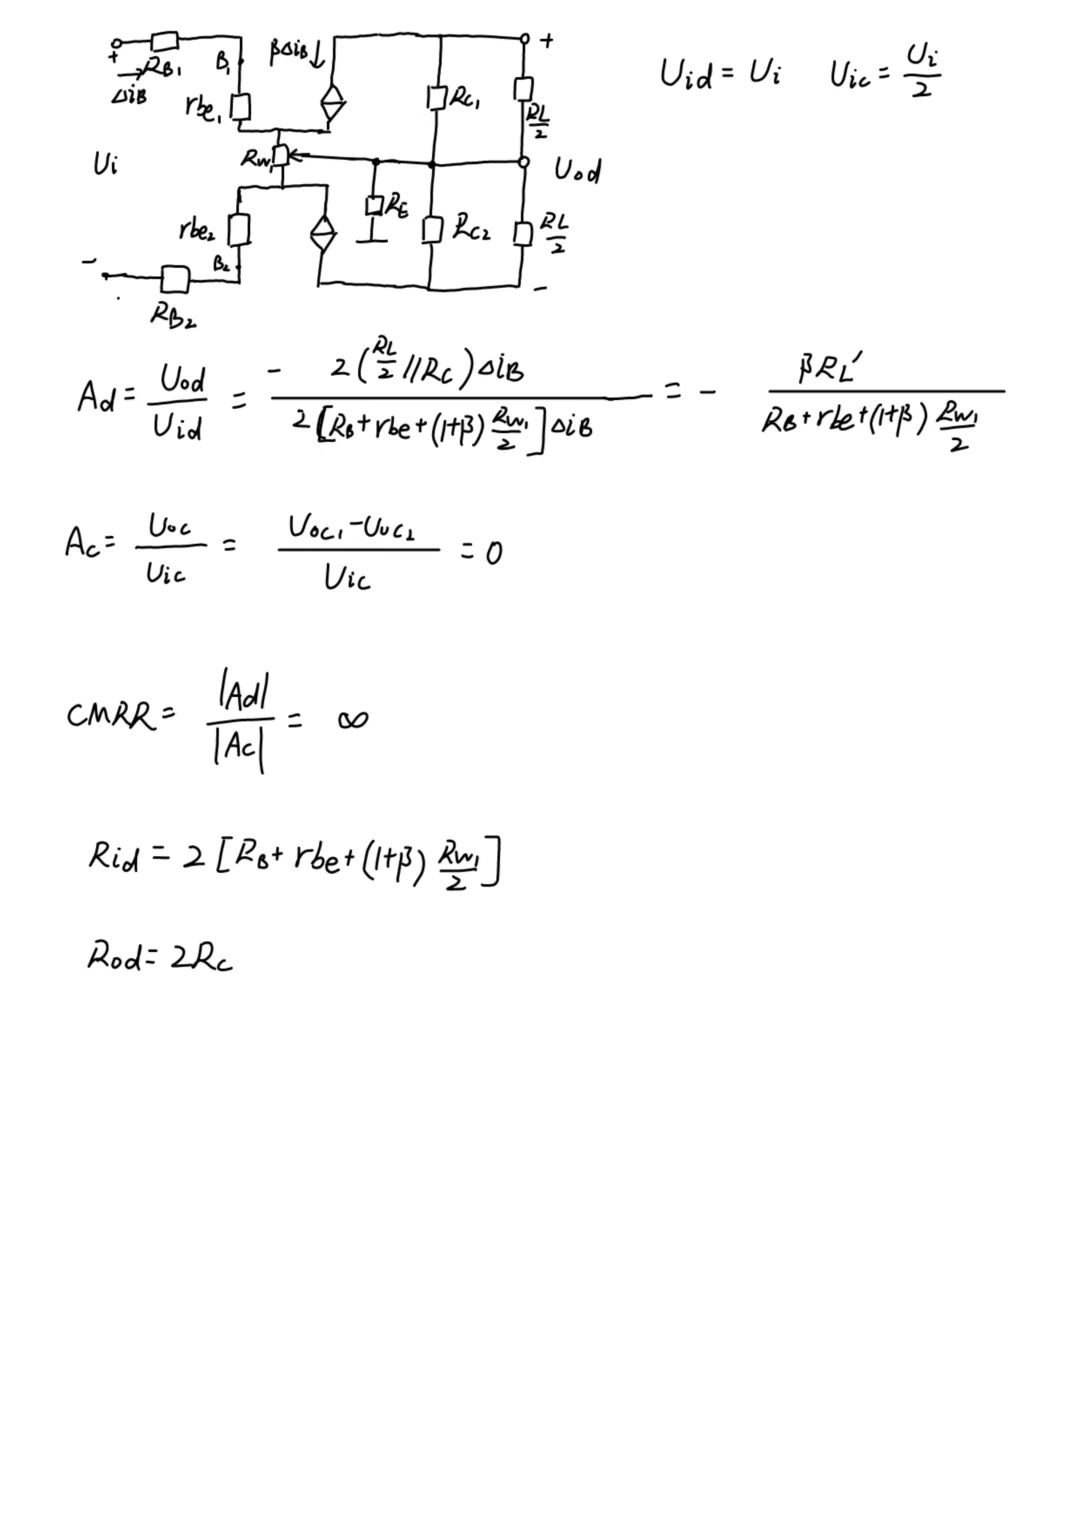 + R_B1 B_1 βΔi_B ↓ +
Δi_B → r_be1 R_C1 R_L/2
U_i R_W1 U_od
r_be2 R_E R_C2 R_L/2
- B_2 -
R_B2
U_id = U_i U_ic = U_i/2
A_d = U_od/U_id = - 2(R_L/2 // R_C)Δi_B / 2[R_B + r_be + (1+β) R_W1/2]Δi_B = - βR_L' / R_B + r_be + (1+β) R_W1/2
A_c = U_oc/U_ic = U_oc1 - U_oc2 / U_ic = 0
CMRR = |Ad|/|Ac| = ∞
R_id = 2[R_B + r_be + (1+β) R_W1/2]
R_od = 2R_C